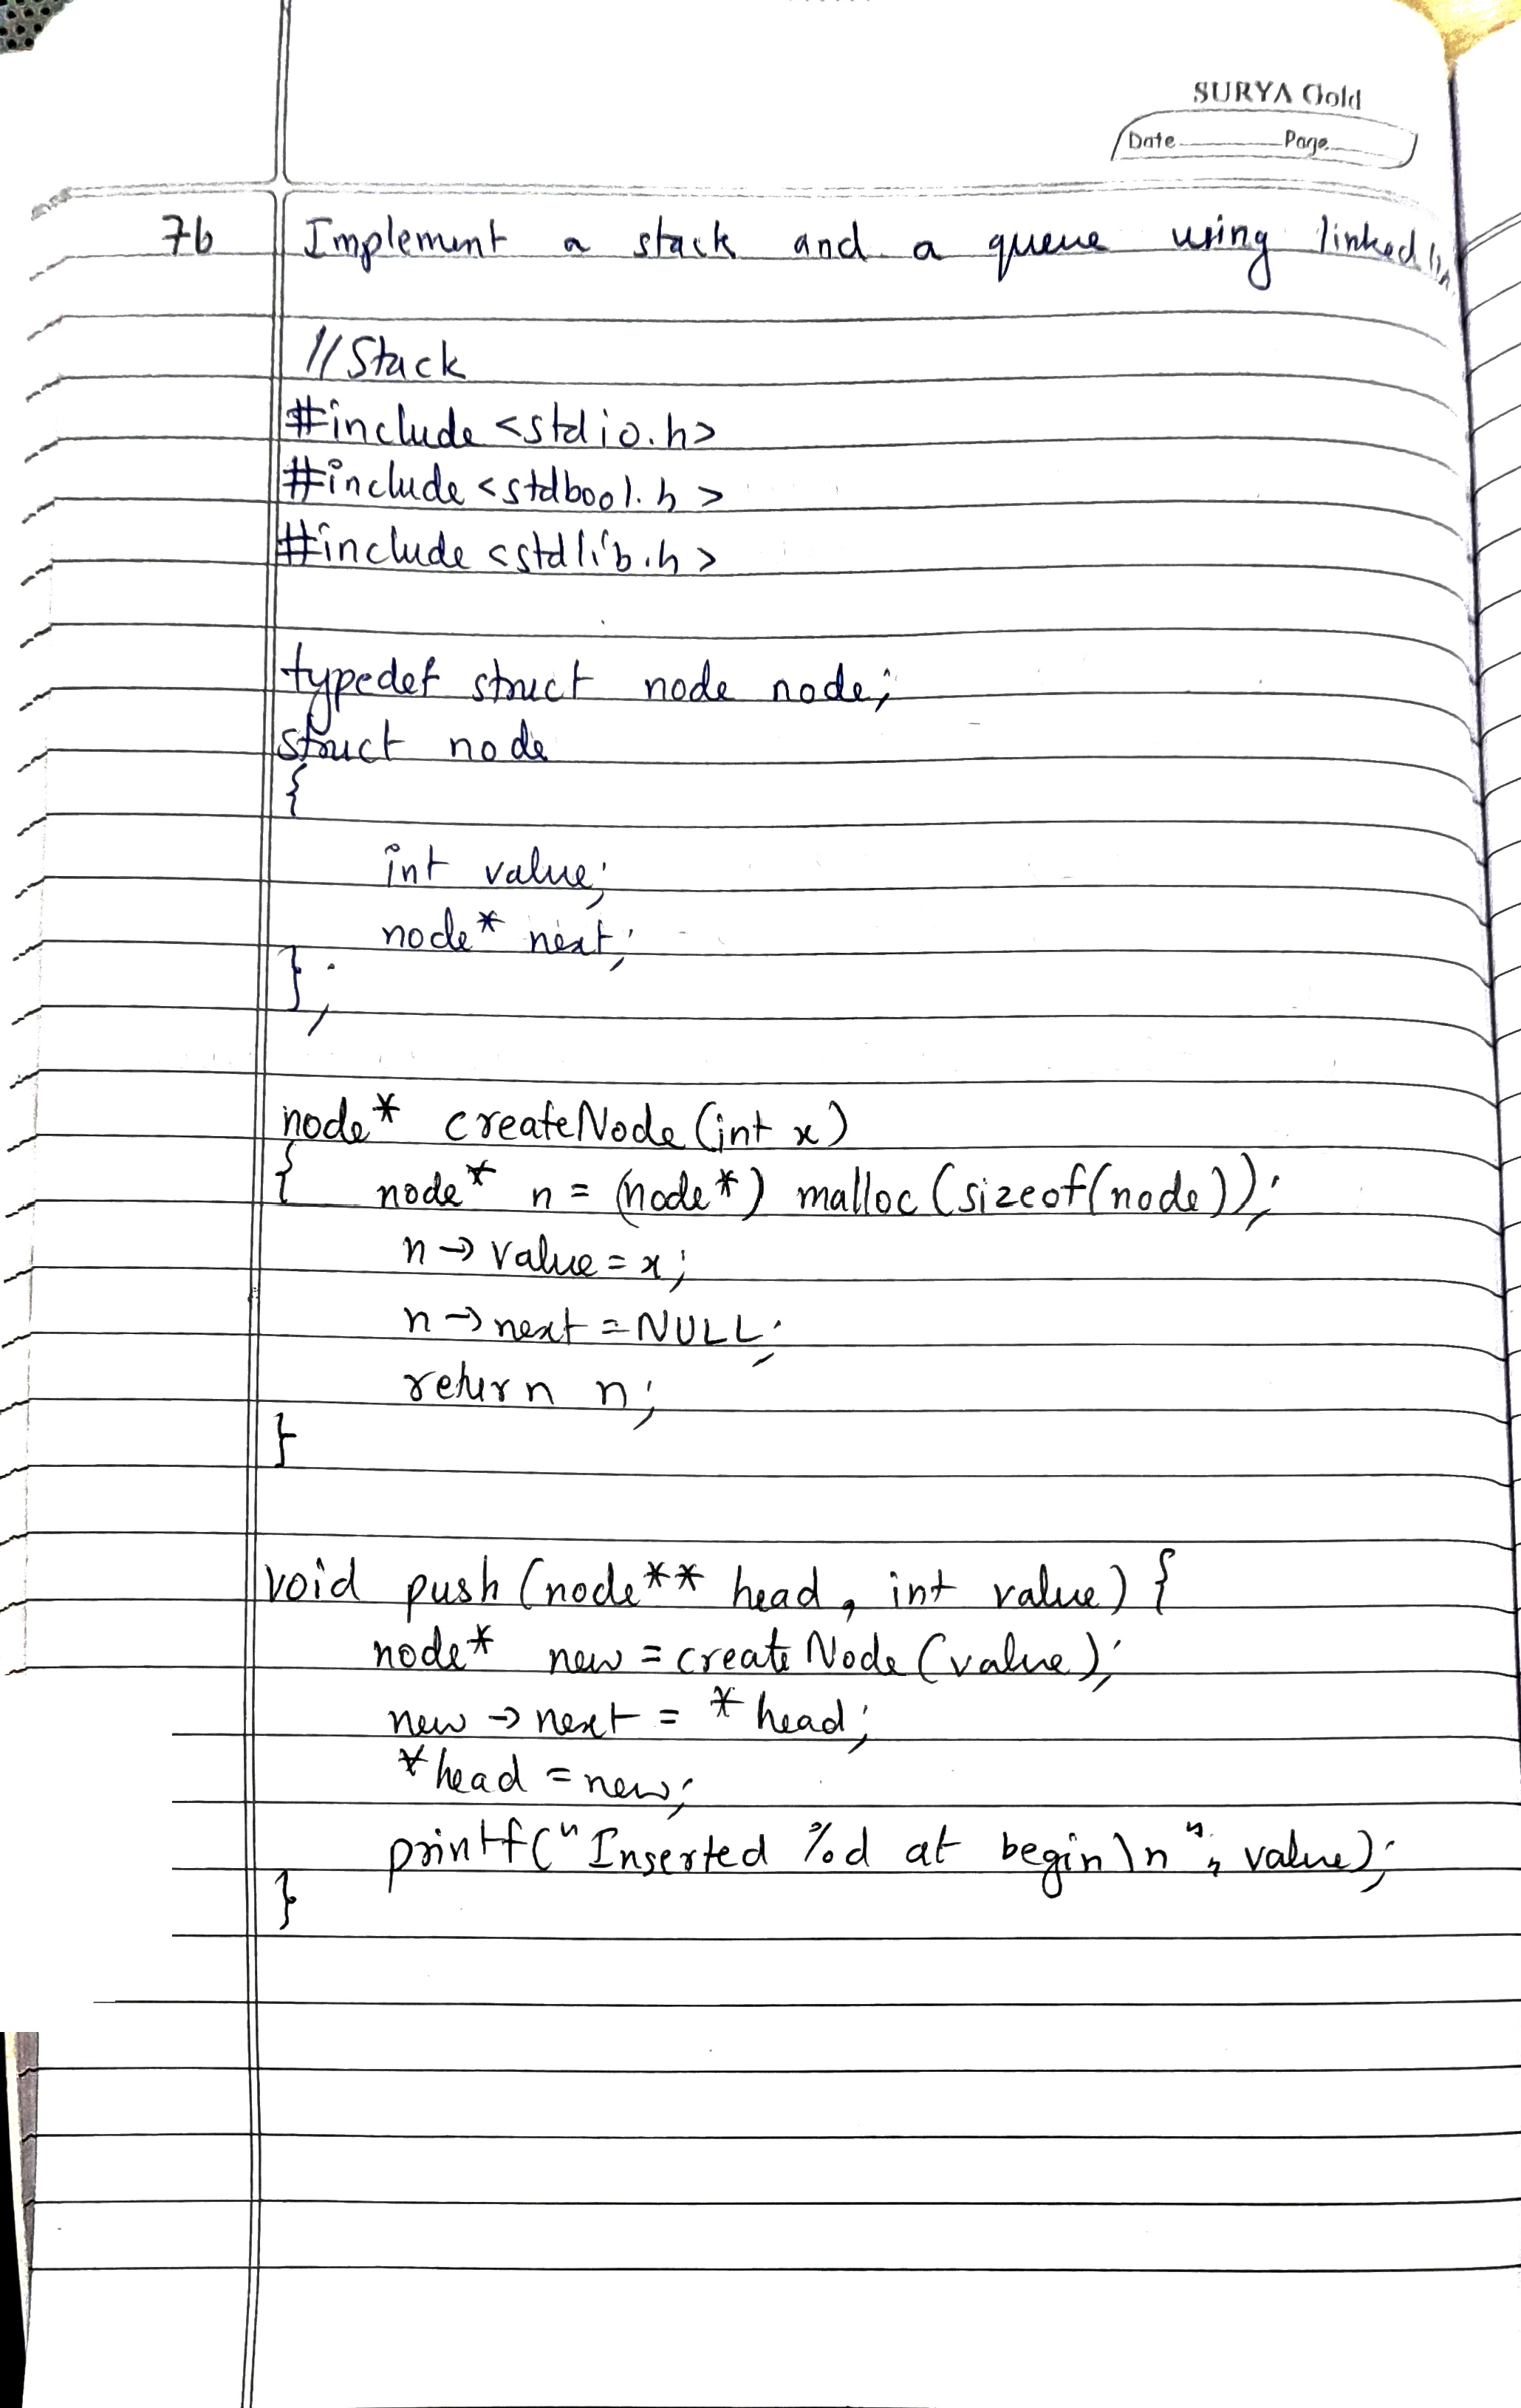 SURYA Gold
Date Page
7b Implement a stack and a queue using linked
//Stack
#include <stdio.h>
#include <stdbool.h>
#include <stdlib.h>
typedef struct node node;
struct node
{
int value;
node* next;
};
node* createNode(int x)
{ node* n = (node*) malloc(sizeof(node));
n->value = x;
n->next = NULL;
return n;
}
void push(node** head, int value) {
node* new = createNode(value);
new->next = *head;
*head = new;
printf("Inserted %d at begin\n", value);
}